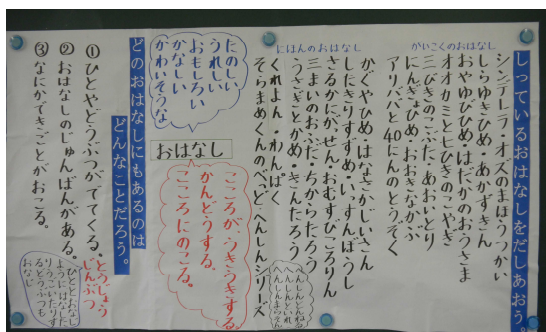 しっているおはなしをだしあおう。
がいこくのおはなし
シンデレラ・オズのまほうつかい
しらゆきひめ・あかずきん
おやゆびひめ・はだかのおうさま
オオカミと七ひきのこやぎ
三びきのこぶた・あおいとり
にんぎょひめ・おおきなかぶ
アリババと40にんのとうぞく
にほんのおはなし
かぐやひめ・はなさかじいさん
したきりすずめ・いっすんぼうし
さるかにがっせん・おむすびころりん
三まいのおふだ・ちからたろう
うさぎとかめ・きんたろう
くれよん・わんぱく
そらまめくんのべっど・へんしんシリーズ
へんしんとんねる
へんしんといれ
へんしんまらそん
たのしい
うれしい
おもしろい
かなしい
かわいそうな
おはなし
こころが、うきうきする。
かんどうする。
こころにのこる。
どのおはなしにもあるのは
どんなことだろう。
①ひとやどうぶつがでてくる。
とうじょう
じんぶつ
②おはなしのじゅんばんがある。
③なにかできごとがおこる。
ひととおなじ
ようにはなした
りうごいたりす
るどうぶつも
おなじ